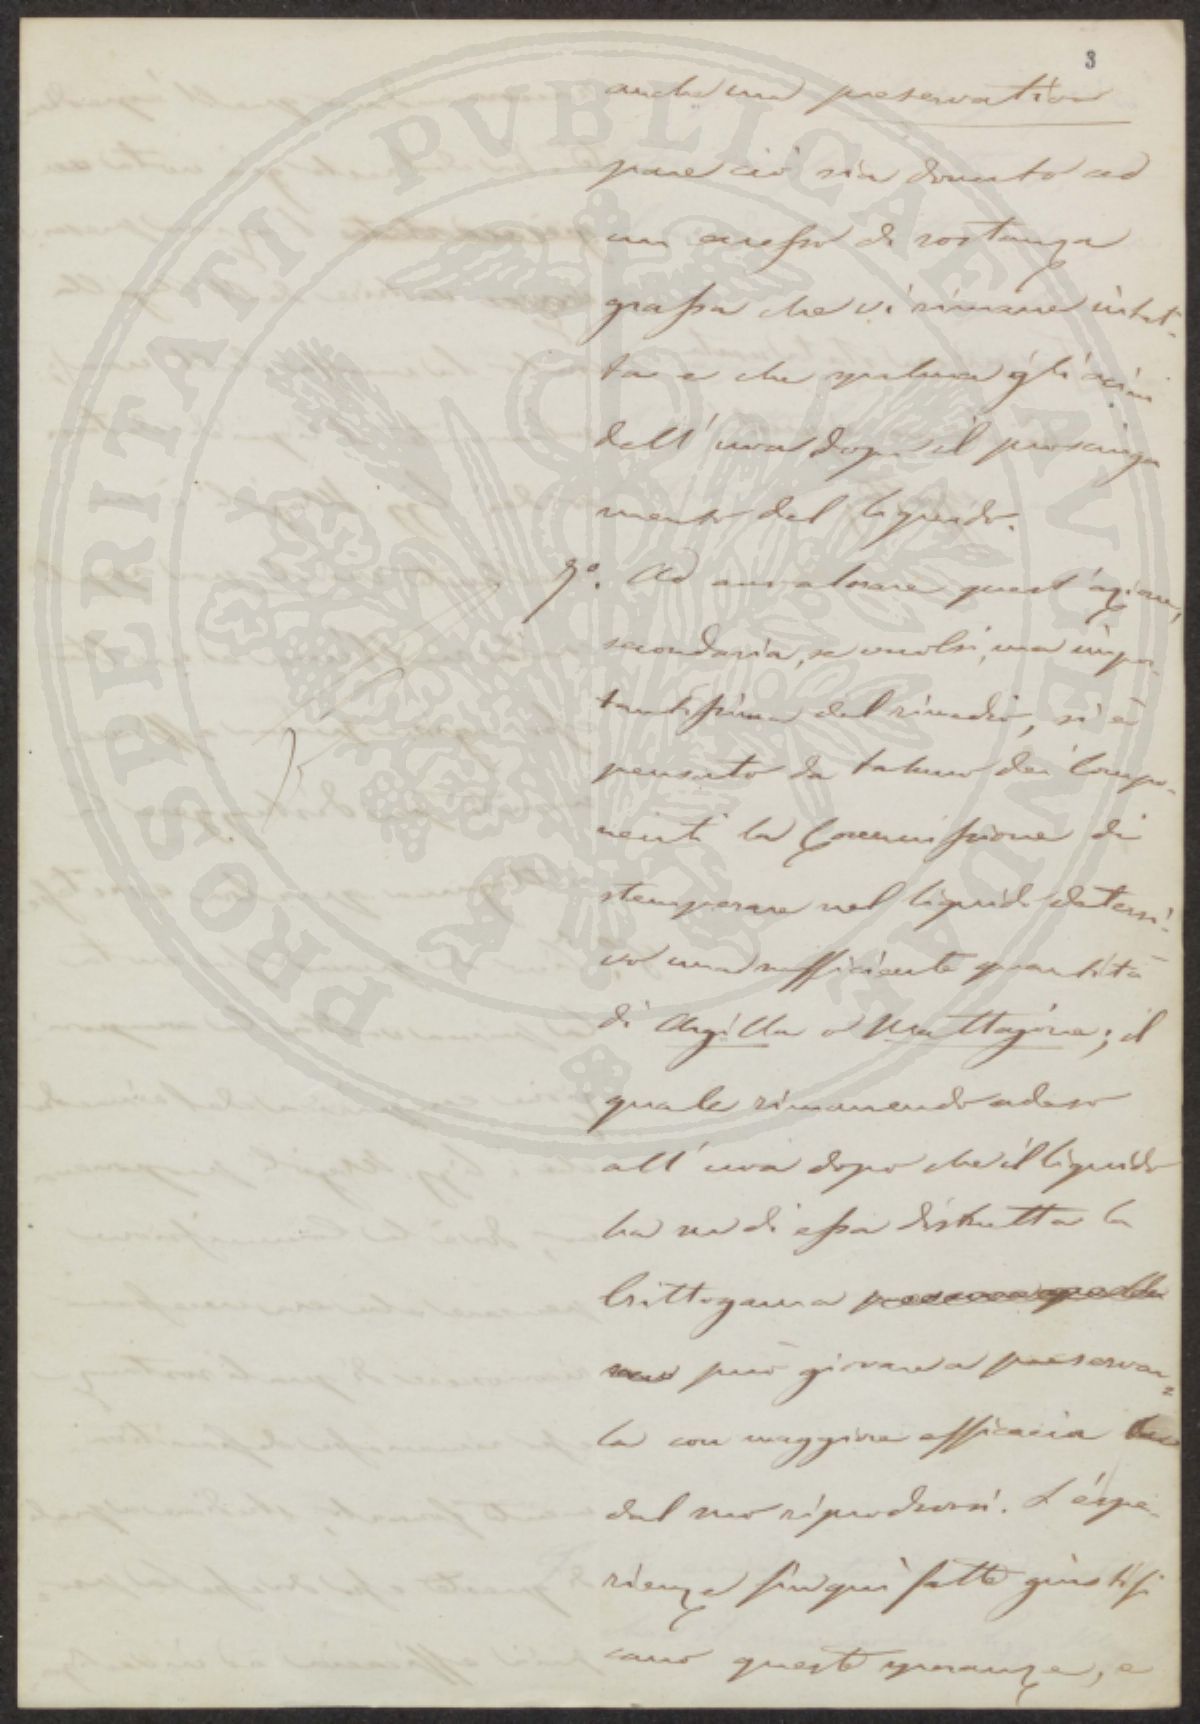 3
anche una preservativa
pare ciò sia dovuto ad
un eccesso di sostanza
grassa che vi rimane intat-
ta e che spalma gli acini
dell'uva dopo il prosciuga
mento del liquido.
7º. Ad avvalorare quest'azione,
secondaria, se vuolsi, ma impor-
tantissima del rimedio, si è
pensato da taluno dei Compo-
nenti la Commissione di
stemperare nel liquido detersi-
vo una sufficiente quantità
di Argilla o Mattajone; il
quale rimanendo adeso
all'uva dopo che il liquido
ha su di essa distrutta la
Crittogama
può giovare a preservar=
la con maggiore efficacia
dal suo riprodursi. L'espe-
rienza sin qui fatte giustifi
cano queste speranze, e
PROSPERITATI PVBLICAE AVGENDAE